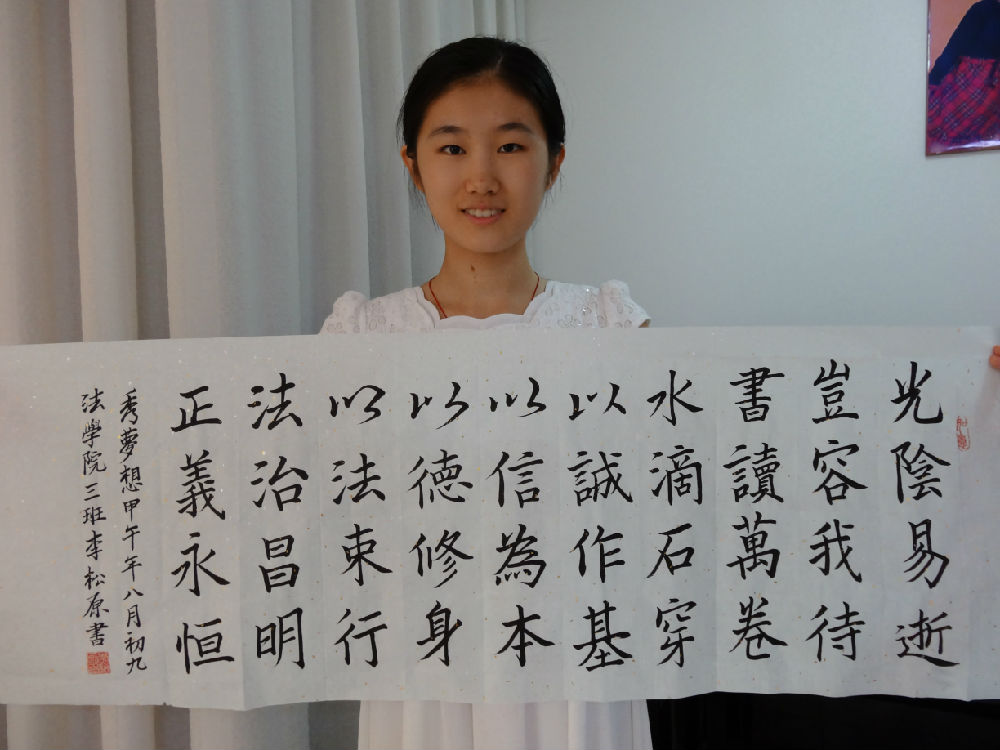 光陰易逝
豈容我待
書讀萬卷
水滴石穿
以誠作基
以信為本
以德修身
以法束行
法治昌明
正義永恒
秀夢想甲午年八月初九
法學院三班李松原書